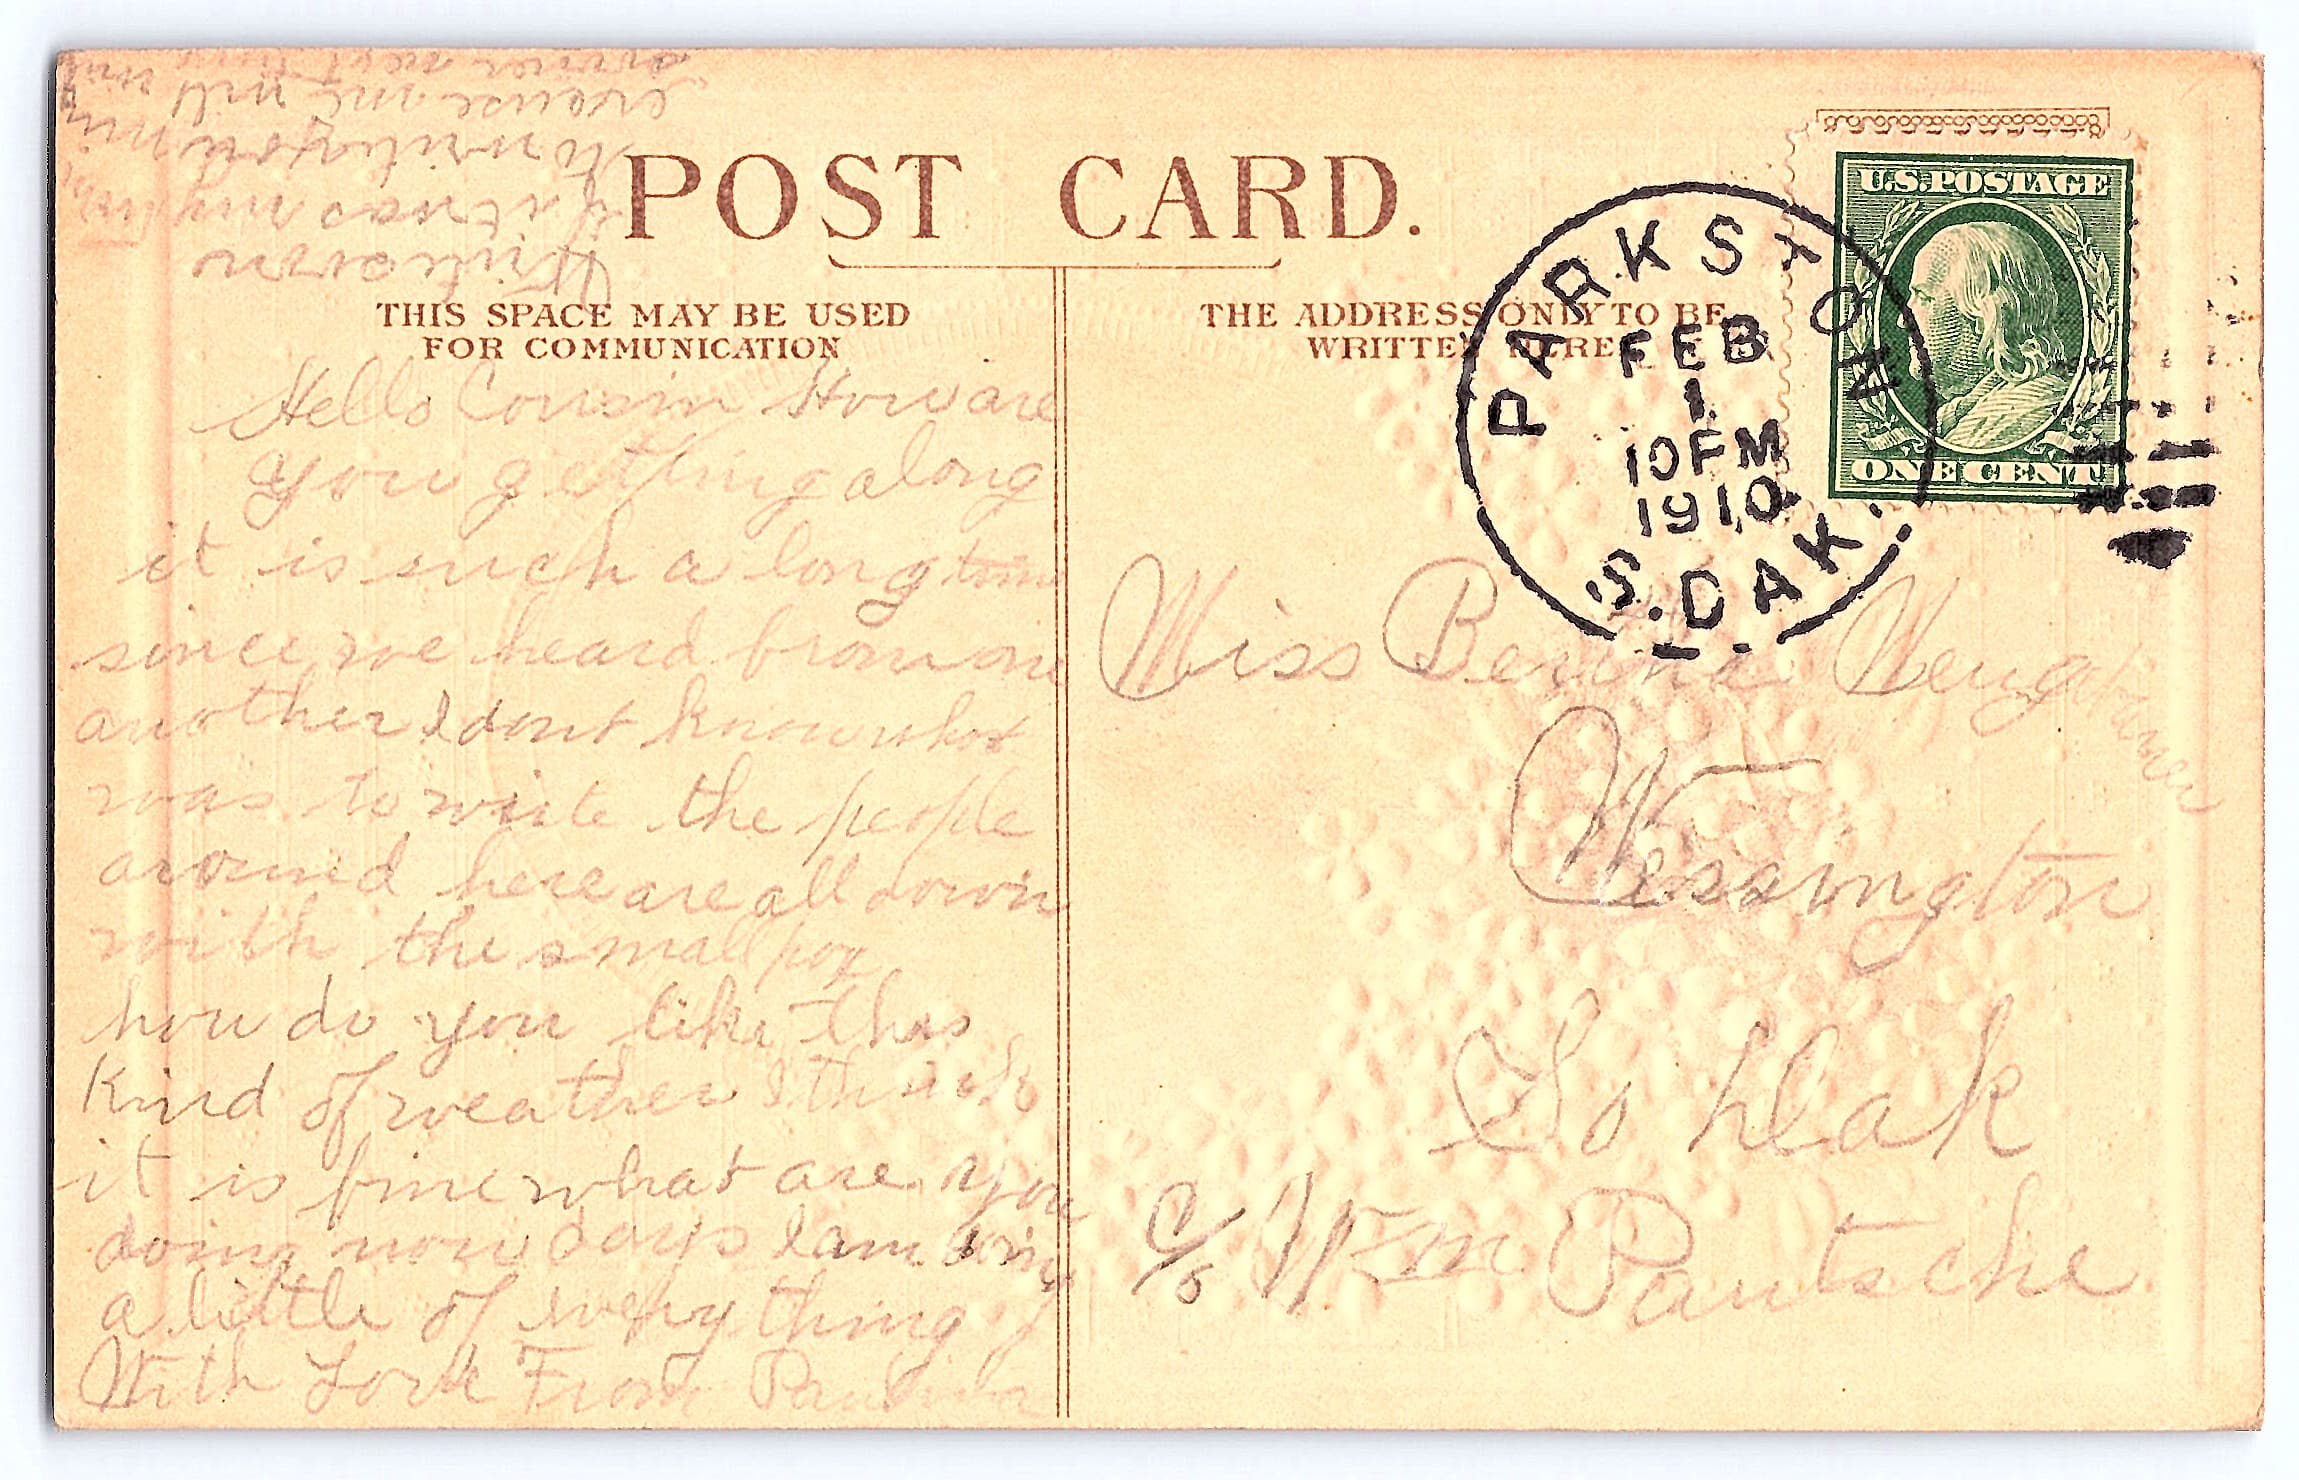 POST CARD.
THIS SPACE MAY BE USED
FOR COMMUNICATION
THE ADDRESS ONLY TO BE
WRITTEN HERE
U.S. POSTAGE
ONE CENT
PARKSTON
FEB
1
10 PM
1910
S. DAK.
Hello Cousin How are
you getting along
it is such a long time
since we heard from one
another I dont know what
was to write the people
around here are all down
with the small pox
how do you like this
Kind of weather I think
it is fine what are you
doing now days I am doing
a little of every thing
With Love From
Write soon
if it was my
to write you
excuse me
next time
Miss
Wessington
So Dak
c/o Wm Pautsche